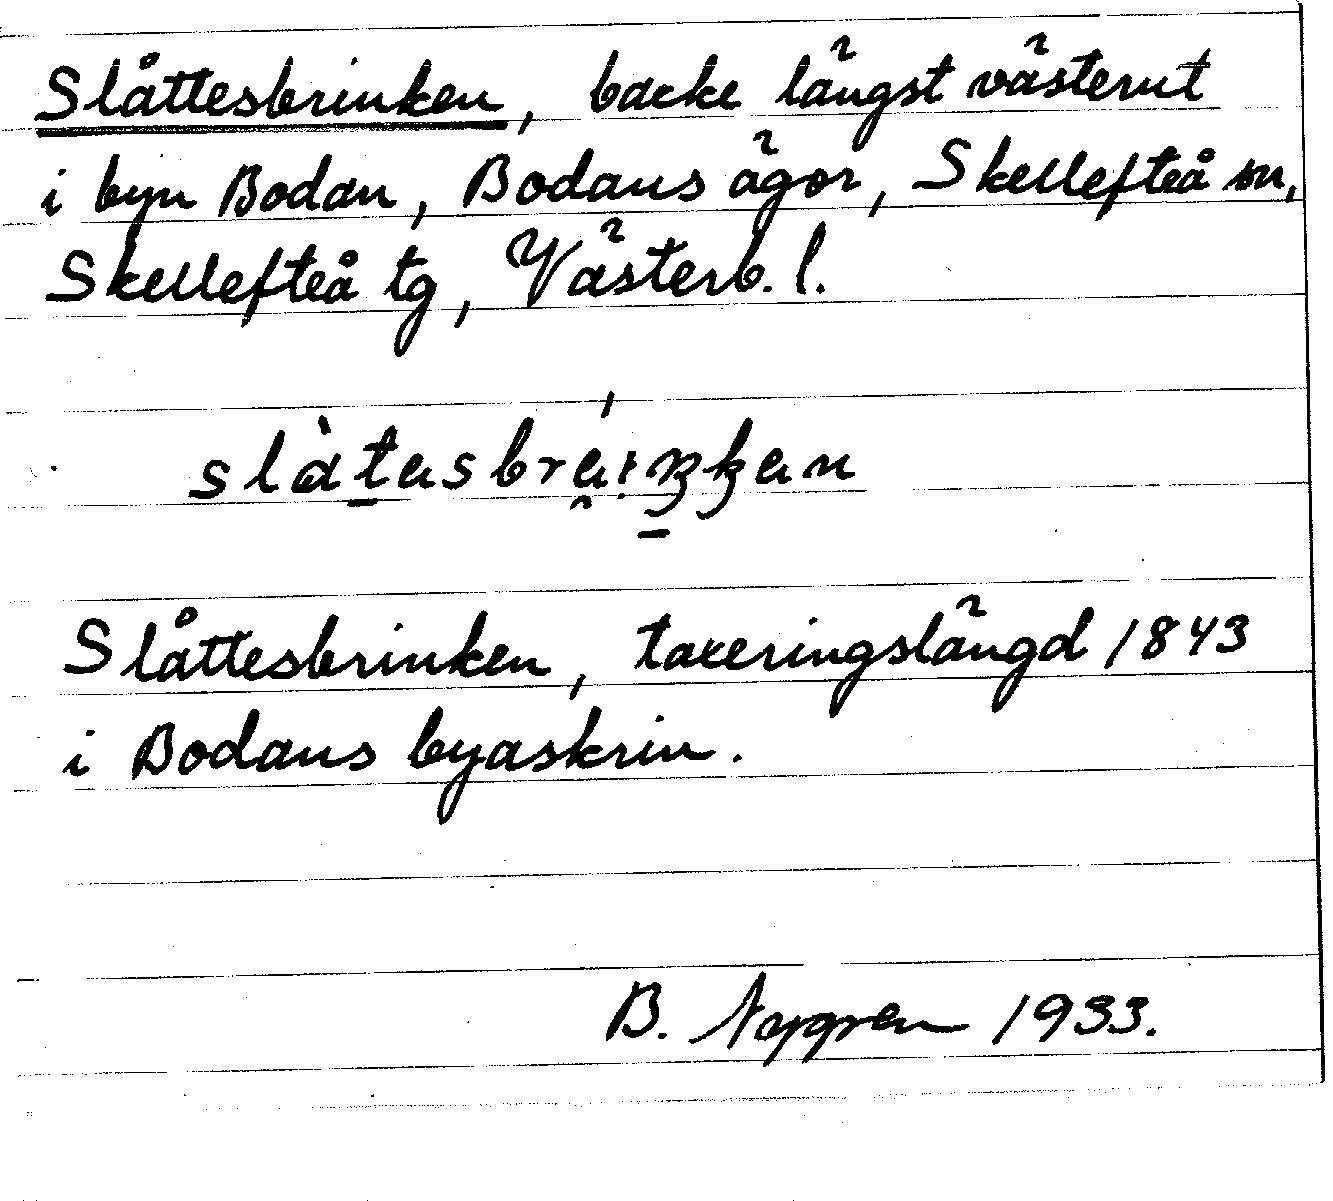 Slåttesbrinken, backe längst västerut
i byn Bodan, Bodans ägor, Skellefteå sn,
Skellefteå tg, Västerb. l.
Slåttesbrinken, taxeringslängd 1843
i Bodans byaskrin.
B. Nygren 1933.